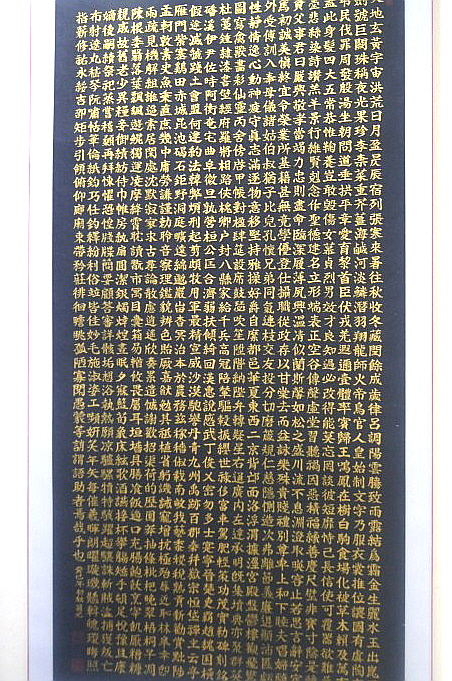 天地玄黃宇宙洪荒日月盈昃辰宿列張寒來暑往秋收冬藏閏餘成歲律呂調陽雲騰致雨露結爲霜金生麗水玉出崑岡
劍號巨闕珠稱夜光果珍李柰菜重芥薑海鹹河淡鱗潛羽翔龍師火帝鳥官人皇始制文字乃服衣裳推位讓國有虞陶唐
弔民伐罪周發殷湯坐朝問道垂拱平章愛育黎首臣伏戎羌遐邇壹體率賓歸王鳴鳳在樹白駒食場化被草木賴及萬方
蓋此身髮四大五常恭惟鞠養豈敢毀傷女慕貞烈男效才良知過必改得能莫忘罔談彼短靡恃己長信使可覆器欲難量
墨悲絲染詩讚羔羊景行維賢剋念作聖德建名立形端表正空谷傳聲虛堂習聽禍因惡積福緣善慶尺璧非寶寸陰是競
資父事君曰嚴與敬孝當竭力忠則盡命臨深履薄夙興溫凊似蘭斯馨如松之盛川流不息淵澄取映容止若思言辭安定
篤初誠美慎終宜令榮業所基籍甚無竟學優登仕攝職從政存以甘棠去而益詠樂殊貴賤禮別尊卑上和下睦夫唱婦隨
外受傅訓入奉母儀諸姑伯叔猶子比兒孔懷兄弟同氣連枝交友投分切磨箴規仁慈隱惻造次弗離節義廉退顛沛匪虧
性靜情逸心動神疲守真志滿逐物意移堅持雅操好爵自縻都邑華夏東西二京背邙面洛浮渭據涇宮殿盤鬱樓觀飛驚
圖寫禽獸畫彩仙靈丙舍傍啓甲帳對楹肆筵設席鼓瑟吹笙陞階納陛弁轉疑星右通廣內左達承明既集墳典亦聚群英
杜稾鍾隸漆書壁經府羅將相路俠槐卿戶封八縣家給千兵高冠陪輦驅轂振纓世祿侈富車駕肥輕策功茂實勒碑刻銘
磻溪伊尹佐時阿衡奄宅曲阜微旦孰營桓公匡合濟弱扶傾綺回漢惠說感武丁俊乂密勿多士寔寧晉楚更霸趙魏困橫
假途滅虢踐土會盟何遵約法韓弊煩刑起翦頗牧用軍最精宣威沙漠馳譽丹青九州禹跡百郡秦并嶽宗恒岱禪主云亭
雁門紫塞雞田赤城昆池碣石鉅野洞庭曠遠緜邈巖岫杳冥治本於農務茲稼穡俶載南畝我藝黍稷稅熟貢新勸賞黜陟
孟軻敦素史魚秉直庶幾中庸勞謙謹敕聆音察理鑑貌辨色貽厥嘉猷勉其祗植省躬譏誡寵增抗極殆辱近恥林皋幸即
兩疏見機解組誰逼索居閑處沈默寂寥求古尋論散慮逍遙欣奏累遣慼謝歡招渠荷的歷園莽抽條枇杷晚翠梧桐早凋
陳根委翳落葉飄颻遊鵾獨運凌摩絳霄耽讀翫市寓目囊箱易輶攸畏屬耳垣牆具膳飡飯適口充腸飽飫烹宰飢厭糟糠
親戚故舊老少異糧妾御績紡侍巾帷房紈扇圓潔銀燭煒煌晝眠夕寐藍筍象牀絃歌酒讌接杯舉觴矯手頓足悅豫且康
嫡後嗣續祭祀蒸嘗稽顙再拜悚懼恐惶牋牒簡要顧答審詳骸垢想浴執熱願涼驢騾犢特駭躍超驤誅斬賊盜捕獲叛亡
布射遼丸嵇琴阮嘯恬筆倫紙鈞巧任釣釋紛利俗竝皆佳妙毛施淑姿工嚬妍笑年矢每催羲暉朗曜璇璣懸斡晦魄環照
指薪修祜永綏吉劭矩步引領俯仰廊廟束帶矜莊徘徊瞻眺孤陋寡聞愚蒙等誚謂語助者焉哉乎也